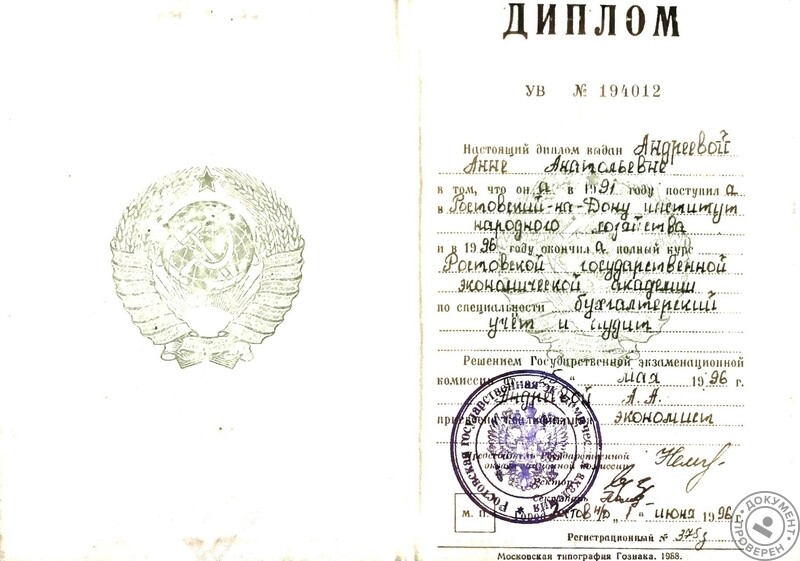 ДИПЛОМ
УВ № 194012
Настоящий диплом выдан Андреевой
Анне Анатольевне
в том, что он а в 1991 году поступил а
в Ростовский-на-Дону институт
народного хозяйства
и в 1996 году окончил а полный курс
Ростовской государственной
экономической академии
по специальности бухгалтерский
учёт и аудит
Решением Государственной экзаменационной
комиссии от 25 " мая 1996 г.
Андреевой А. А.
присвоена квалификация экономист
Председатель Государственной
экзаменационной комиссии
Ректор
Секретарь
М. П. Город Ростов н/Д " 1 " июня 1996
Регистрационный № 375д
Московская типография Гознака. 1988.
Ростовская государственная экономическая академия
ДОКУМЕНТ ПРОВЕРЕН